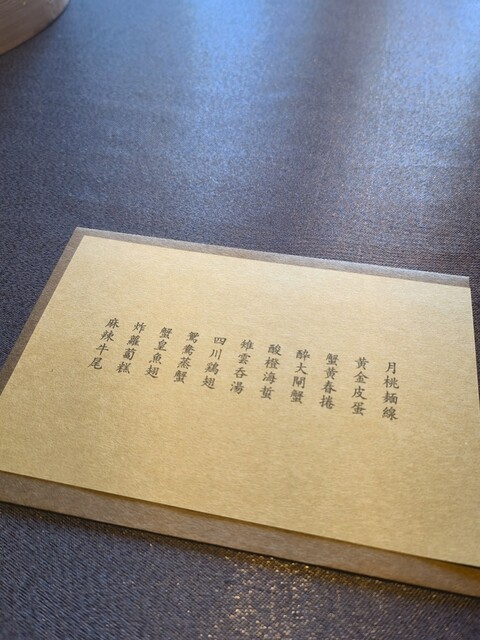 月桃麺線
黃金皮蛋
蟹黃春捲
醉大閘蟹
酸橙海蜇
雉雲吞湯
四川鶏翅
鴛鴦蒸蟹
蟹皇魚翅
炸蘿蔔糕
麻辣牛尾